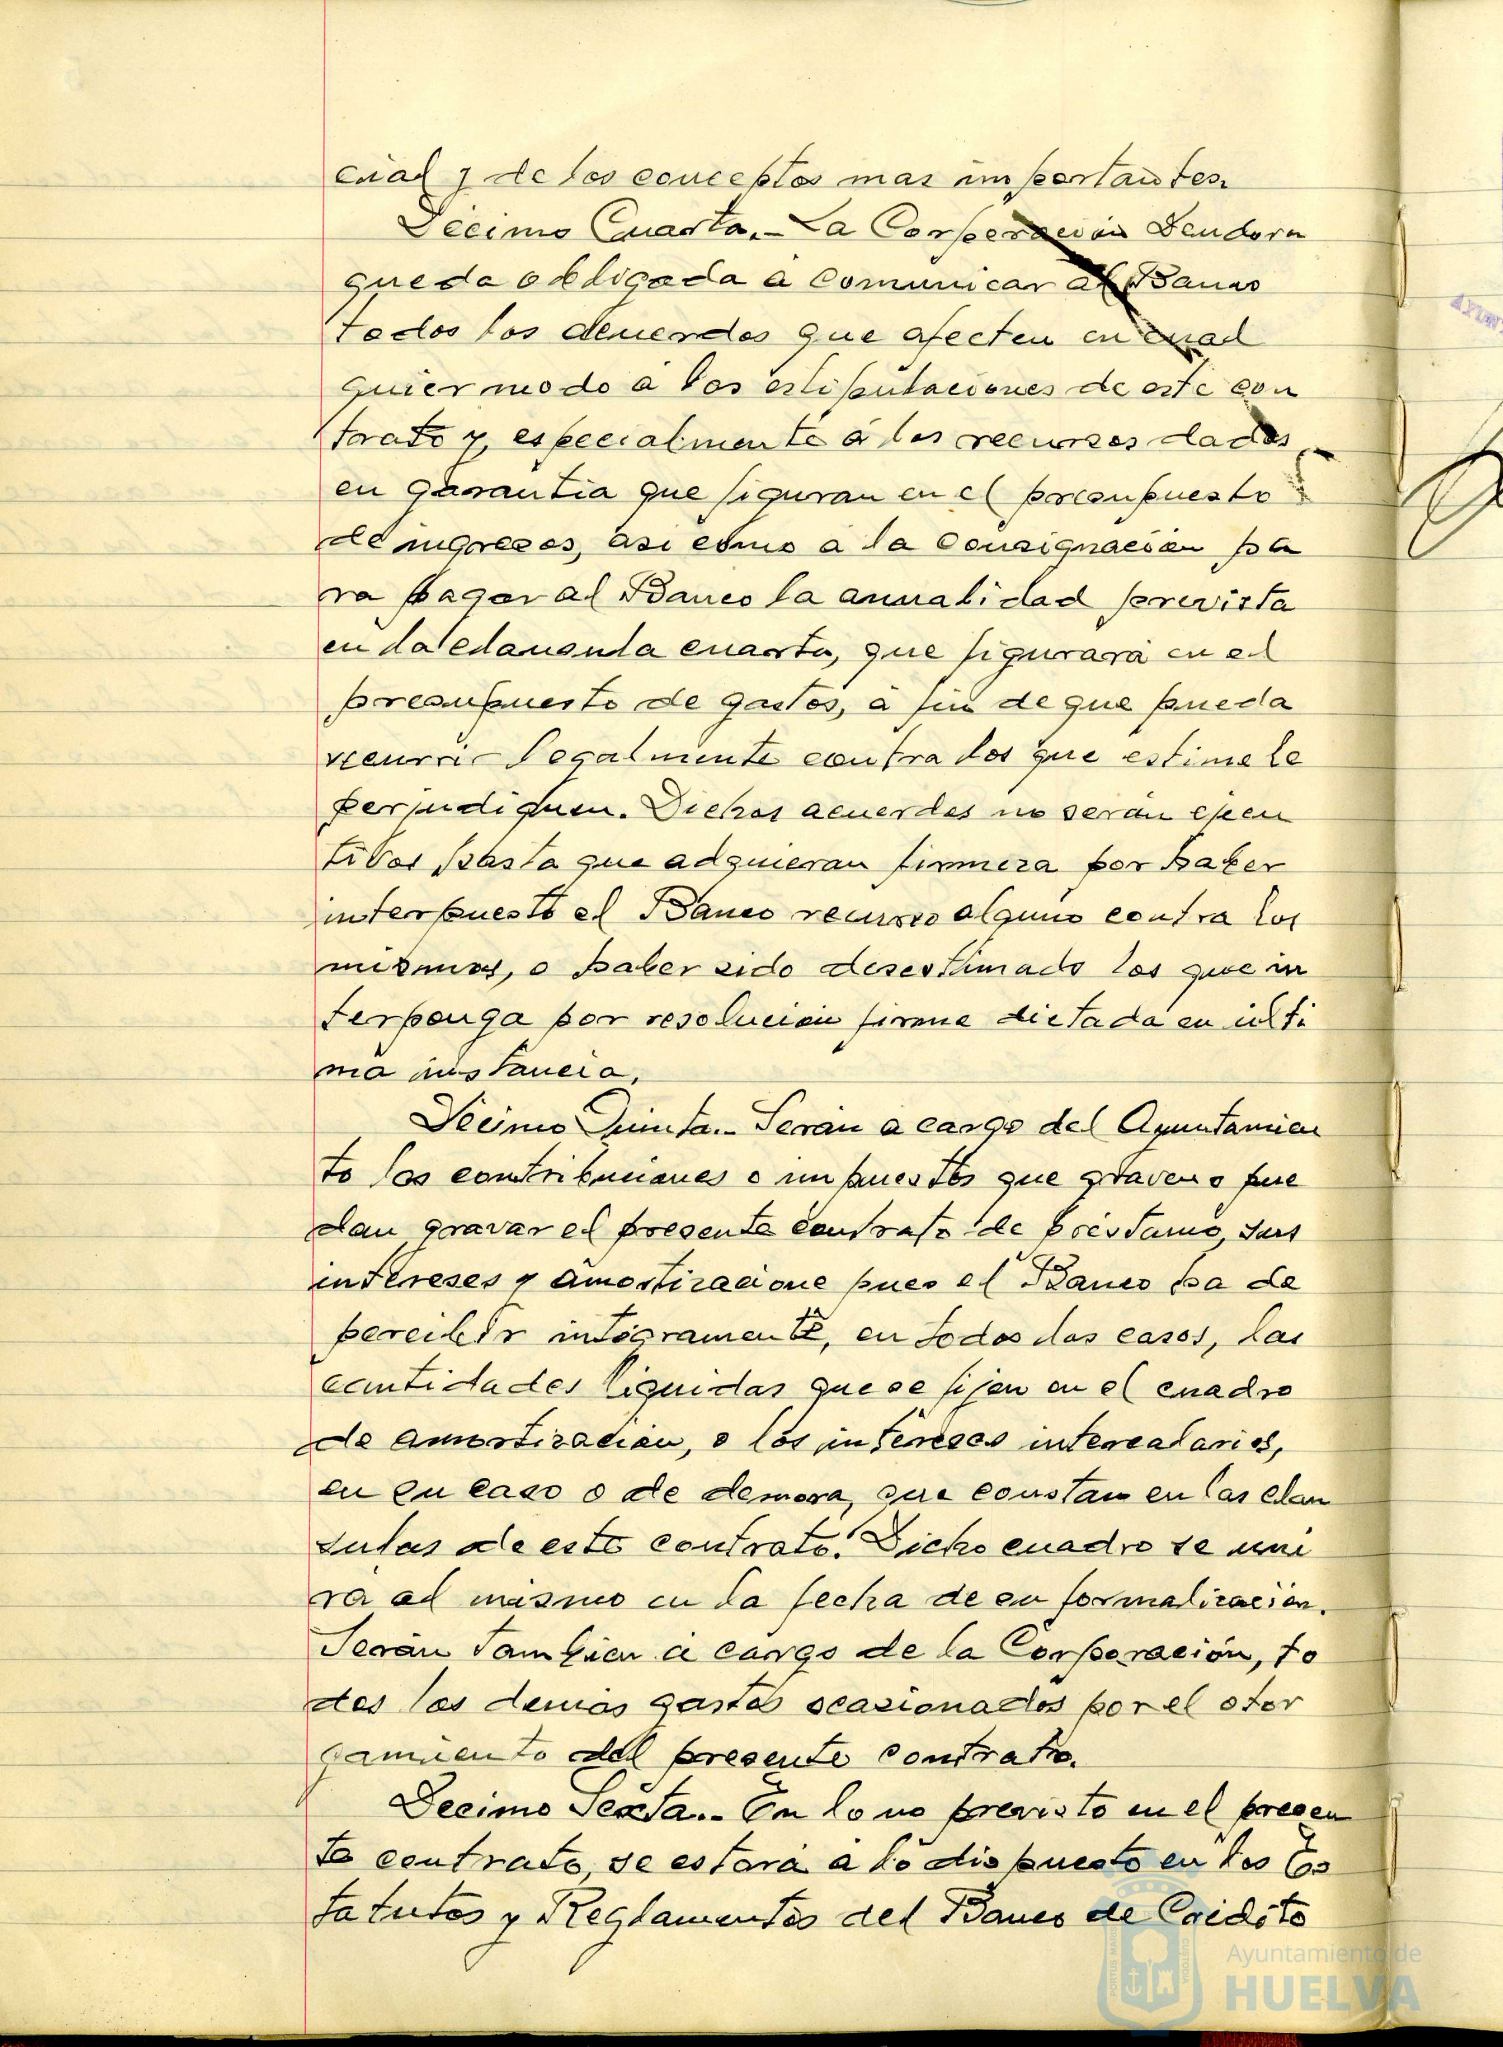 cial y de los conceptos mas importantes.
Décimo Cuarta.- La Corporación Deudora
queda obligada a comunicar al Banco
todos los acuerdos que afecten en cual
quier modo á las estipulaciones de este con
trato y, especialmente á los recursos dados
en garantia que figuran en el presupuesto
de ingresos, asi como a la consignación pa
ra pagar al Banco la anualidad prevista
en la clausula cuarta, que figurará en el
presupuesto de gastos, á fin de que pueda
recurrir legalmente contra los que estime le
perjudiquen. Dichos acuerdos no serán ejecu
tivos hasta que adquieran firmeza por haber
interpuesto el Banco recurso alguno contra los
mismos, o haber sido desestimado los que in
terponga por resolución firme dictada en últi
ma instancia.
Décimo Quinta.- Serán a cargo del Ayuntamien
to las contribuciones o impuestos que graven o pue
dan gravar el presente contrato de préstamo, sus
intereses y amortizacione pues el Banco ha de
percibir integramente, en todos los casos, las
cantidades liquidas que se fijen en el cuadro
de amortización, o los intereses intercalarios,
en su caso o de demora, que constan en las clau
sulas de este contrato. Dicho cuadro se uni
rá al mismo en la fecha de su formalización.
Serán tambien a cargo de la Corporación, to
dos los demás gastos ocasionados por el otor
gamiento del presente contrato.
Decimo Sexta.- En lo no previsto en el presen
te contrato, se estará a lo dispuesto en los Es
tatutos y Reglamentos del Banco de Crédito
Ayuntamiento de
HUELVA